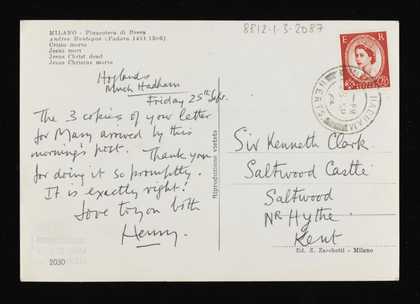 8812-1-3-2087
MILANO - Pinacoteca di Brera
Andrea Mantegna (Padova 1431-1506)
Cristo morto
Jesus mort
Jesus Christ dead
Jesus Christus
Hoglands
Much Hadham
Friday 25th Sept.
The 3 copies of your letter
for Mary arrived by this
morning's post. Thank you
for doing it so promptly.
It is exactly right!
Love to you both
Henry.
2030
Riproduzione vietata
E R
HADHAM
HERTS
Sir Kenneth Clark
Saltwood Castle
Saltwood
Nr Hythe
Kent
Ed. E. Zacchetti - Milano